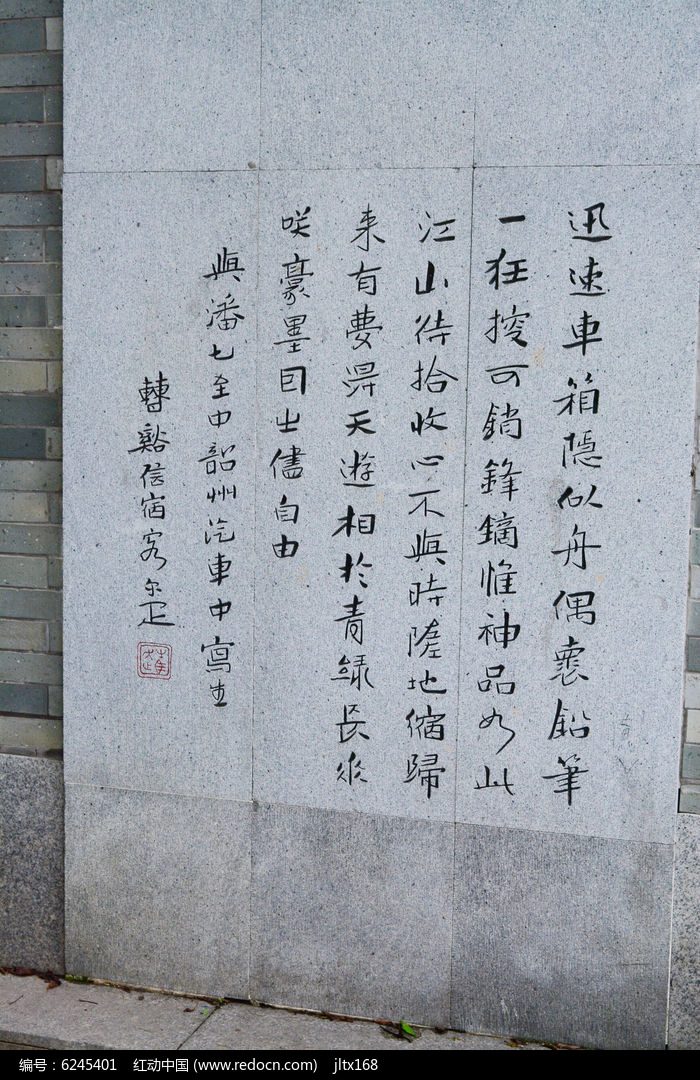 迅速車箱隱似舟偶褱鉛筆
一狂搜可銷鋒鏑惟神品如此
江山待拾收心不與時隨地縮歸
来有夢淂天遊相於青緑長
咲豪墨因之儘自由
與潘七至中韶州汽車中寫生
谿信宿客尔疋
编号：6245401 红动中国 (www.redocn.com) jltx168